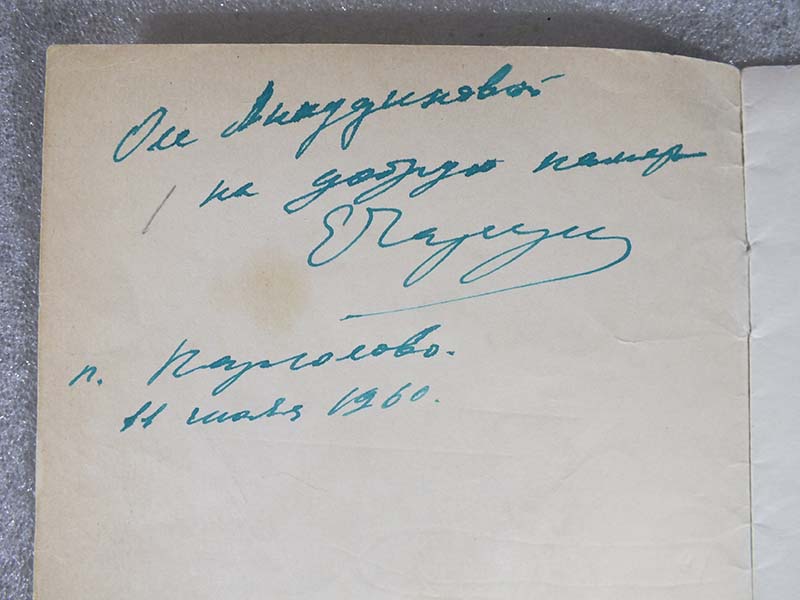 Оле Анкудиновой
на добрую память
Е Чарушин
п. Парголово.
11 июля 1960.